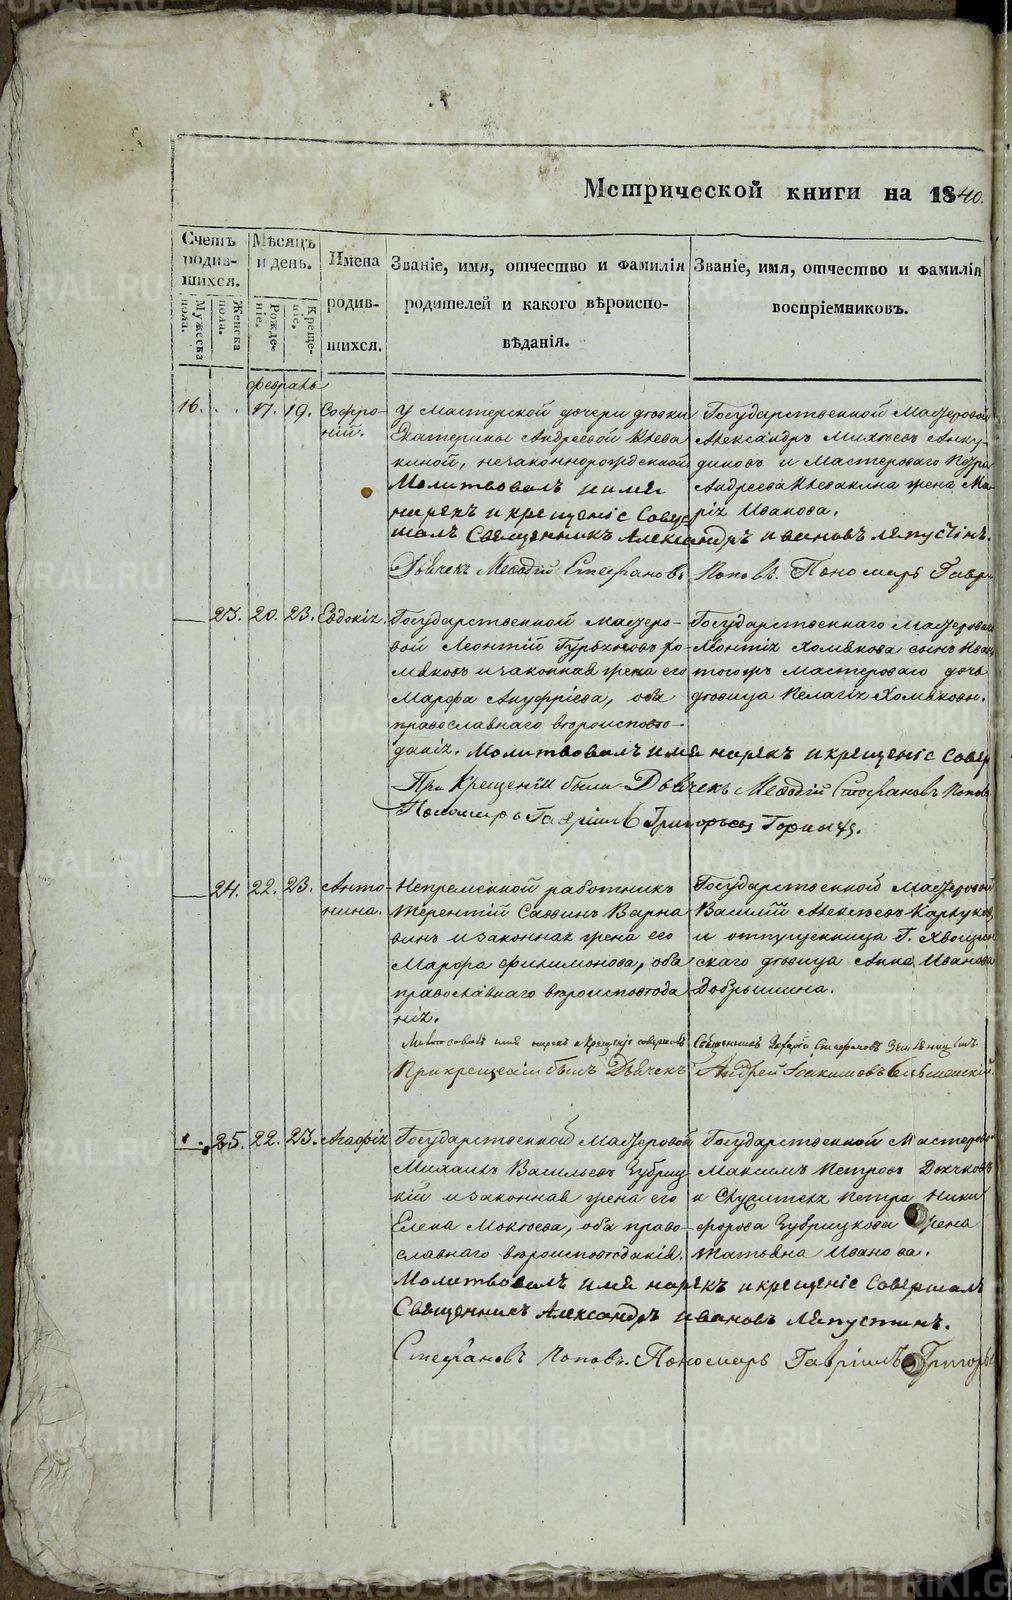 Метрической книги на 1840.
Счетъ родив-шихся.
Мужеска пола.
Женска пола.
Мѣсяцъ и день.
Рожде-ніе.
Креще-ніе.
Имена
родив-
шихся.
Званіе, имя, отчество и фамилія
родителей и какого вѣроиспо-
вѣданія.
Званіе, имя, отчество и фамилія
воспріемниковъ.
февраль
16. 17. 19. Софро-
ній.
У мастерской дочери дѣвки
Екатерины Андреевой Клева
киной, незаконнорожденной
Молитвовалъ и имя
нарекъ и крещеніе Совер
шалъ Священникъ Александръ Ивановъ Ляпустинъ.
Дьячекъ Меѳодій Стефановъ Поповъ. Пономарь Гаврі
Государственной Мастеровой
Александръ Михѣевъ Анку-
диновъ и Мастероваго Петра
Андреева Клевакина жена Ма-
рія Иванова.
23. 20. 23. Евдокія.
Государственной мастеро-
вой Леонтій Гурьяновъ Хо-
мяковъ и законная жена его
Марфа Ануфріева, оба
православнаго вѣроисповѣ-
данія. Молитвовалъ имя нарекъ и крещеніе Совер
При Крещеніи были Дьячекъ Меѳодій Стефановъ Поповъ
Пономарь Гавріилъ Григорьевъ
Государственнаго Мастероваго
Леонтія Хомякова сынъ Иванъ
тогожъ мастероваго дочь
дѣвица Пелагія Хомякова.
24. 22. 23. Анто-
нина.
Непремѣнной работникъ
Терентій Саввинъ Варна
винъ и законная жена его
Марфа Филимонова, оба
православнаго вѣроисповѣда
нія.
Молитвовалъ имя нарекъ и Крещеніе совершалъ Священникъ Стефановъ
При крещеніи былъ Дьячекъ Андрей Іоакимовъ
Государственной Мастеровой
Василій Алексѣевъ
и отпущенница Г.
скаго дѣвица Анна Иванова
Добрынина.
25. 22. 23. Агафія
Государственной Мастеровой
Михаилъ Васильевъ Зубриц
кій и законная жена его
Елена Мокѣева, оба право-
славнаго вѣроисповѣданія.
Молитвовалъ имя нарекъ и крещеніе Совершалъ
Священникъ Александръ Ивановъ Ляпустинъ.
Стефановъ Поповъ. Пономарь Гавріилъ Григорь
Государственной Мастеров
Максимъ Петровъ Дьячковъ
и Служителя Петра Ники
форова Зубрицкова жена
Татьяна Иванова.
METRIKI.GASO-URAL.RU